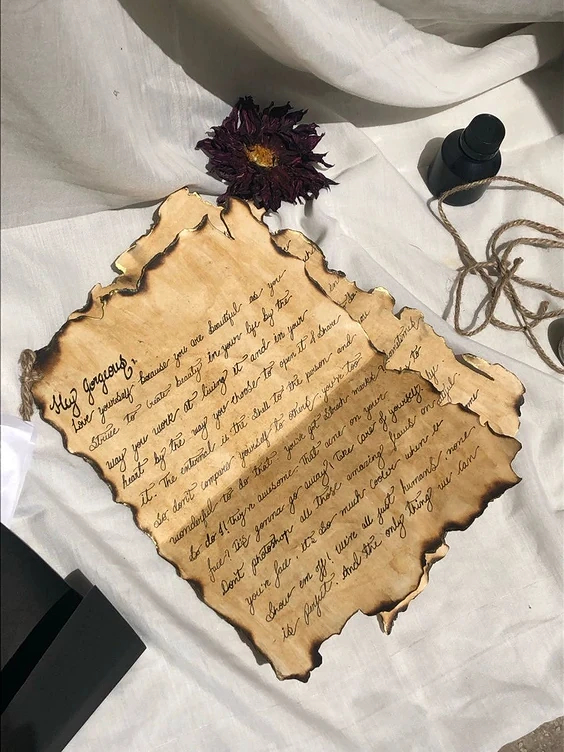 Hey gorgeous,
Love yourself because you are beautiful as you
Strive to create beauty in your life by the
way you work at living it and in your
heart by the way you choose to open it & share
it. The external is the shell to the person and
So don't compare yourself to others you're too
wonderful to do that you've got stretch marks?
So do I! they're awesome. That acne on your
face? It's gonna go away! Take care of yourself.
Don't photoshop all those amazing flaws on
you're face it's so much cooler when u
Show em off! we're all just humans none
is perfect. And the only thing we can